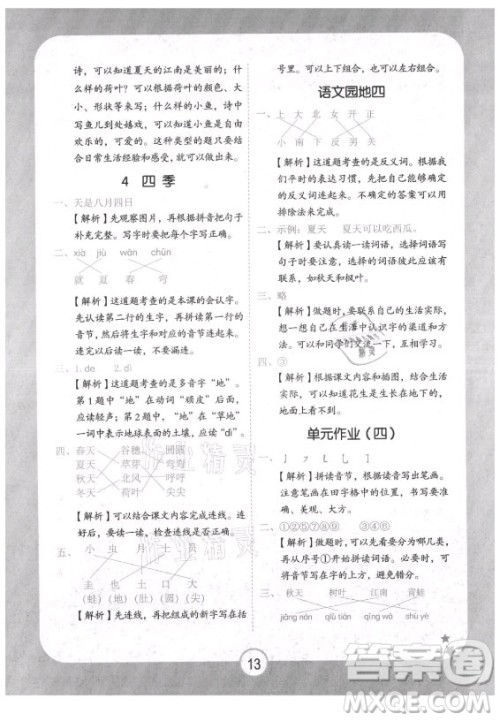 诗，可以知道夏天的江南是美丽的；什
么样的荷叶？可以从荷叶的颜色、大
小、形状等方面来写；什么样的小鱼，诗中
写鱼儿到处嬉戏，可以写小鱼是自由
欢乐的，可爱的。这种类型的题可以结
合日常生活经验和感受，就可以做出来。
4 四季
一、天是八月四日
【解析】先观察图片，再根据拼音把句子
补充完整。写字时要书写正确。
二、xià jiù wān chūn
就 夏 春 弯
【解析】这道题考查的是本课的会认字。
先认读第二行的生字，再拼读第一行的
音节，然后将生字和对应的音节连线。
连完后再读一读，不要漏连。
三、1. de 2. dì
【解析】这道题考查的是多音字“地”。
第1题中“地”在动词“顽皮”后面，
应读轻声；第2题中“地”在“草地”
一词中，代表地球表面的土壤，应读dì。
四、春天 谷穗 圆圆
夏天 草芽 弯弯
秋天 北风 呼呼
冬天 荷叶 尖尖
【解析】可以结合课文内容完成连线。连
好后，要读一读，检查连线是否正确。
五、小 虫 月 土
圭 也 土 口 大
(蛙) (地) (肚) (尖)
【解析】先连线，再把组成的新字写在括
号里。可以上下组合，也可以左右组合。
语文园地四
一、上 大 北 女 开 正
小 南 下 反 男 关
【解析】这道题考查的是反义词。根据我
们平时的表达习惯，可以很快找到正
确的答案。不太确定的答案可以用
排除法来完成。
二、示例：夏天 夏天可以吃西瓜。
【解析】要认真读一读词语，根据词语写
句子时要注意，这些内容之间应该有
联系，如秋天和枫叶。
三、略
【解析】做题时，要联系自己的生活实际，
想一想自己在生活中认识字的方法，
可以与同学们交流一下，也可以写一写。
四、③
【解析】根据课文内容和插图，再联系生
活实际，可以知道花生是长在地里的。
单元作业（四）
【解析】要根据读音写出笔画。
注意笔画在田字格中的位置，书写要准
确、美观、大方。
二、①②⑤⑦⑧⑨ ③④⑥
【解析】先想一想可以分为哪几类，
然后根据音节开始拼读词语。必要时，可
在音节下写上字，方便做题，避免错分。
三、秋天 树叶 江南 青蛙
jiāng nán qiū tiān qīng wā shù yè
13
答案圈
MXQE.COM